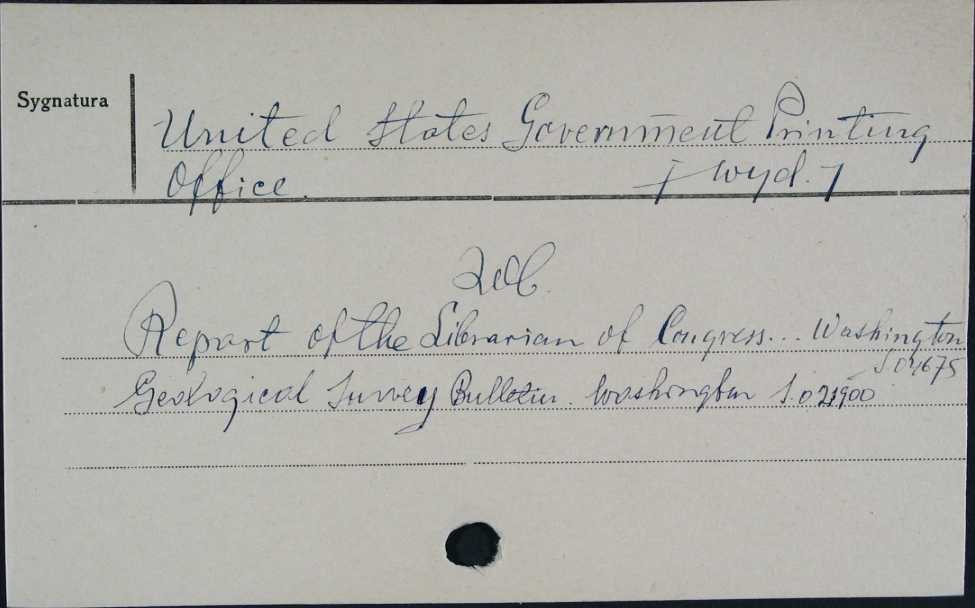 Sygnatura
United States Government Printing
Office. [wyd.]
Zob.
Report of the Librarian of Congress... Washington
S.04675
Geological Survey Bulletin. Washington S.021900